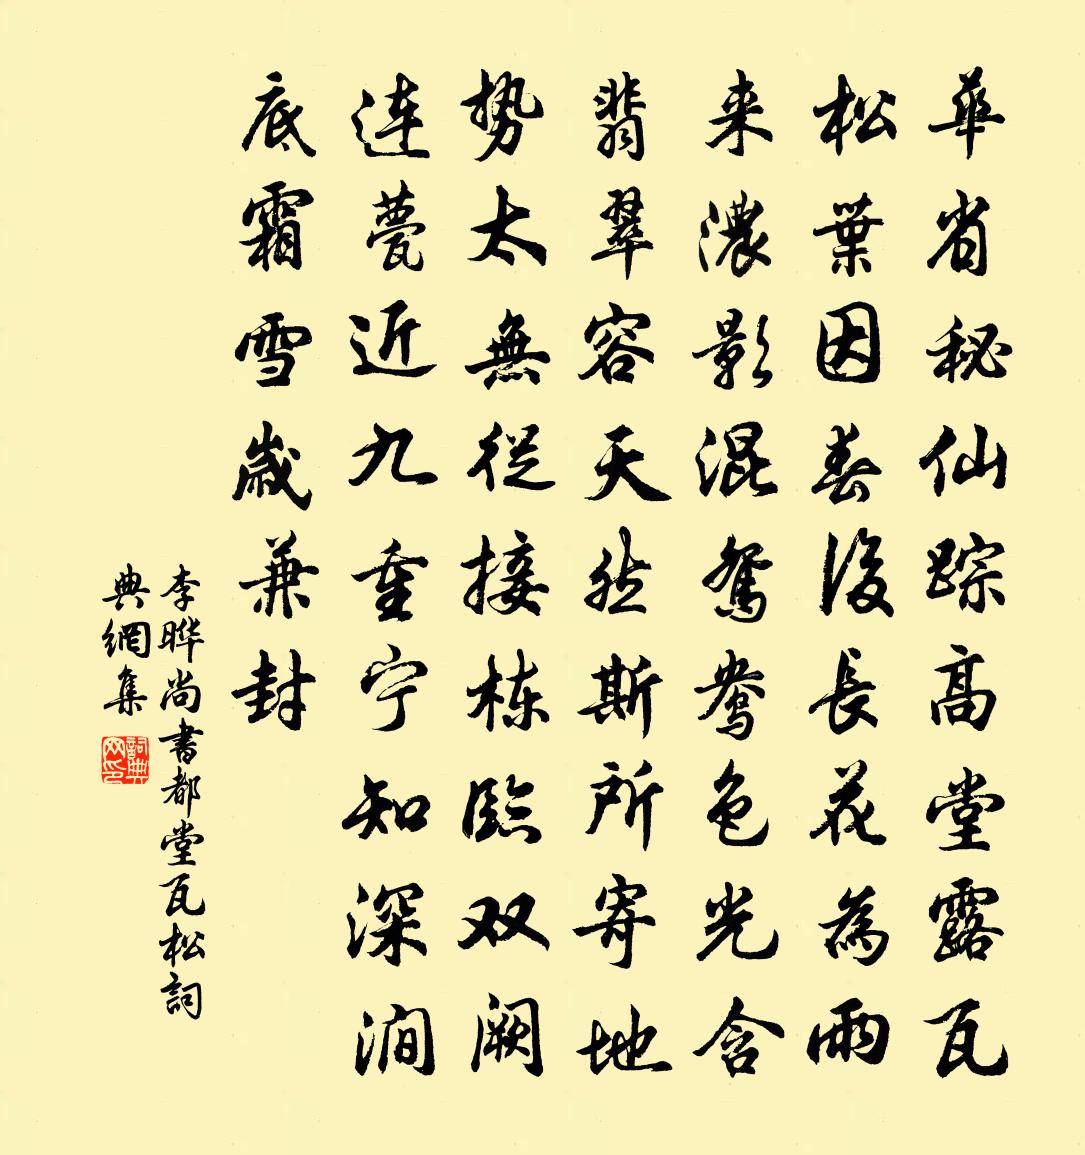 華省秘仙踪高堂露瓦
松葉因春後長花為雨
来濃影混鴛鴦色光含
翡翠容天然斯所寄地
势太無從接栋臨双阙
連甍近九重宁知深澗
底霜雪歲兼封
李曄尚書都堂瓦松詞
典網集
詞典
网印